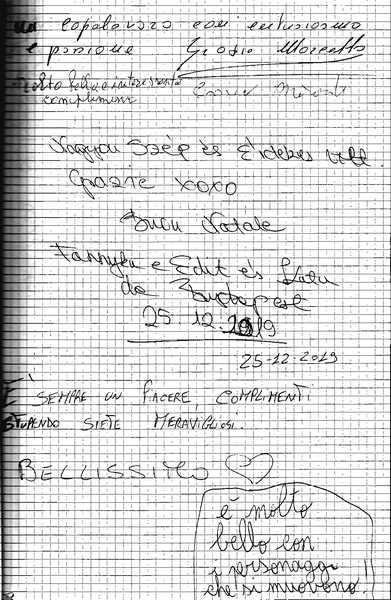 un capolavoro con entusiasmo
e passione Grazie
Molto bello e interessante
complimenti
Nagyon Szép és Érdekes volt.
Grazie xoxo
Buon Natale
e Edit és
da Budapest
25.12.2019
25-12-2019
E' SEMPRE UN PIACERE, COMPLIMENTI
STUPENDO SIETE MERAVIGLIOSI.
BELLISSIMO
è molto
bello con
i personaggi
che si muovono!